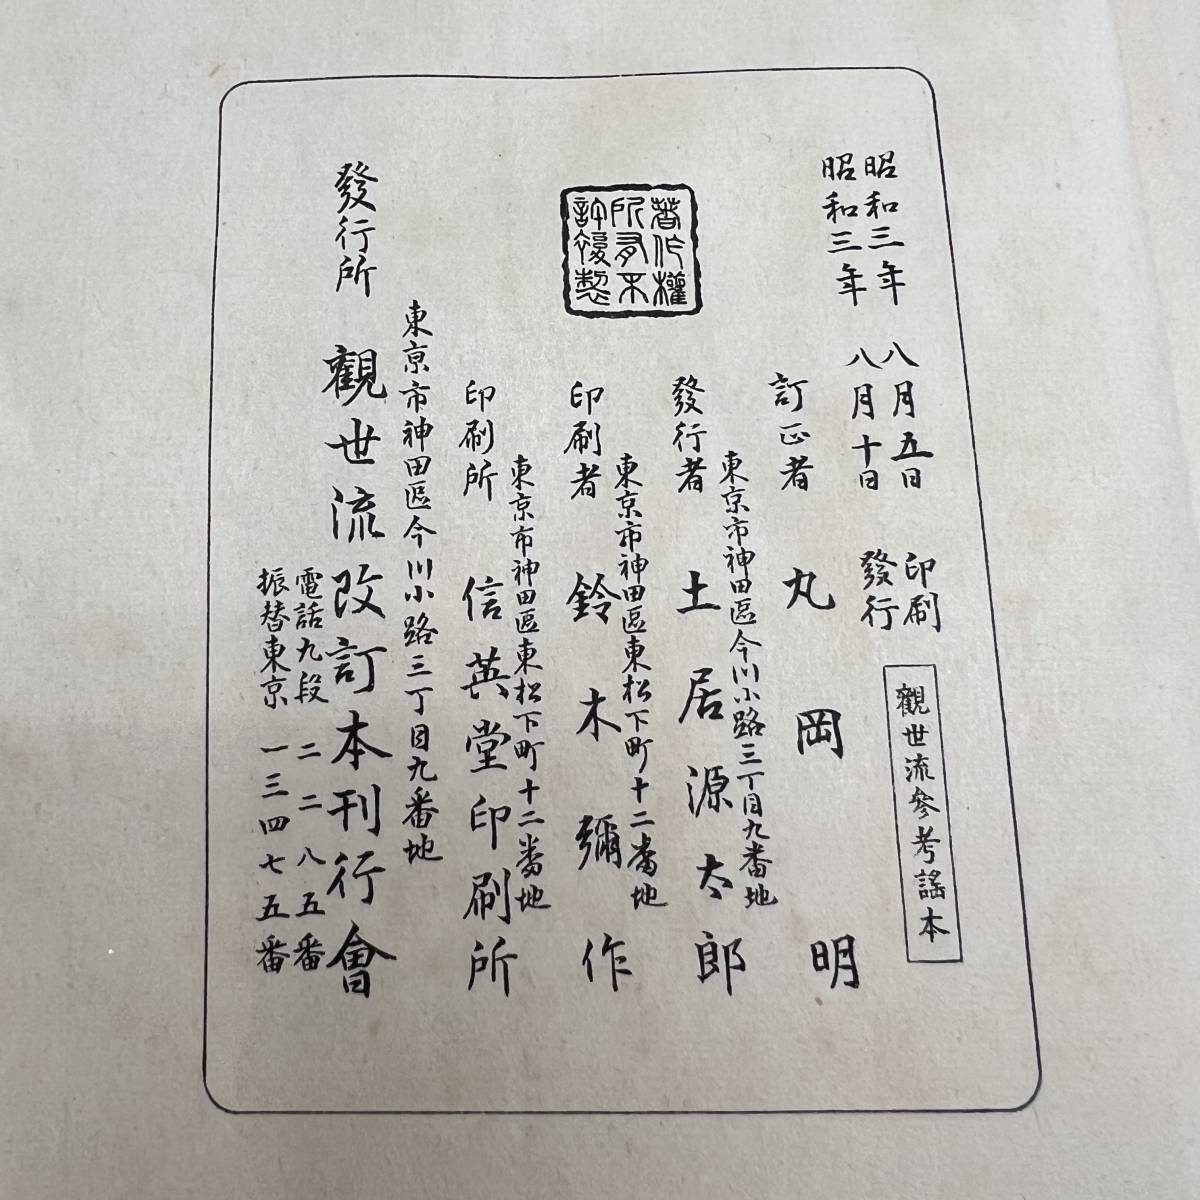 昭和三年 八月五日 印刷
昭和三年 八月十日 發行
觀世流參考謠本
訂正者 丸岡明
東京市神田區今川小路三丁目九番地
發行者 土居源太郎
著作權
所有不
許複製
東京市神田區東松下町十二番地
印刷者 鈴木彌作
東京市神田區東松下町十二番地
印刷所 信英堂印刷所
東京市神田區今川小路三丁目九番地
發行所 觀世流改訂本刊行會
電話九段 二二八五番
振替東京 一三四七五番